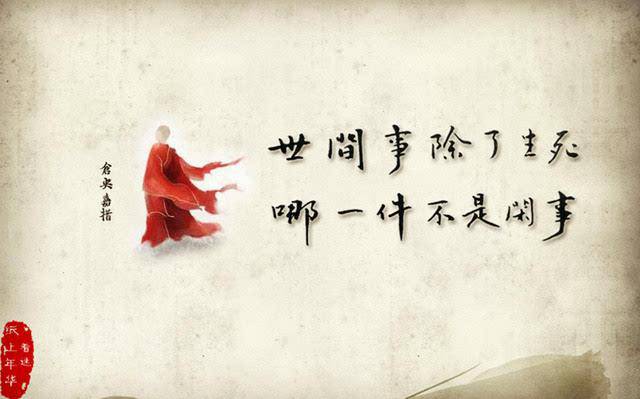 世間事除了生死
哪一件不是閑事
倉央嘉措
纸上年华
看迷